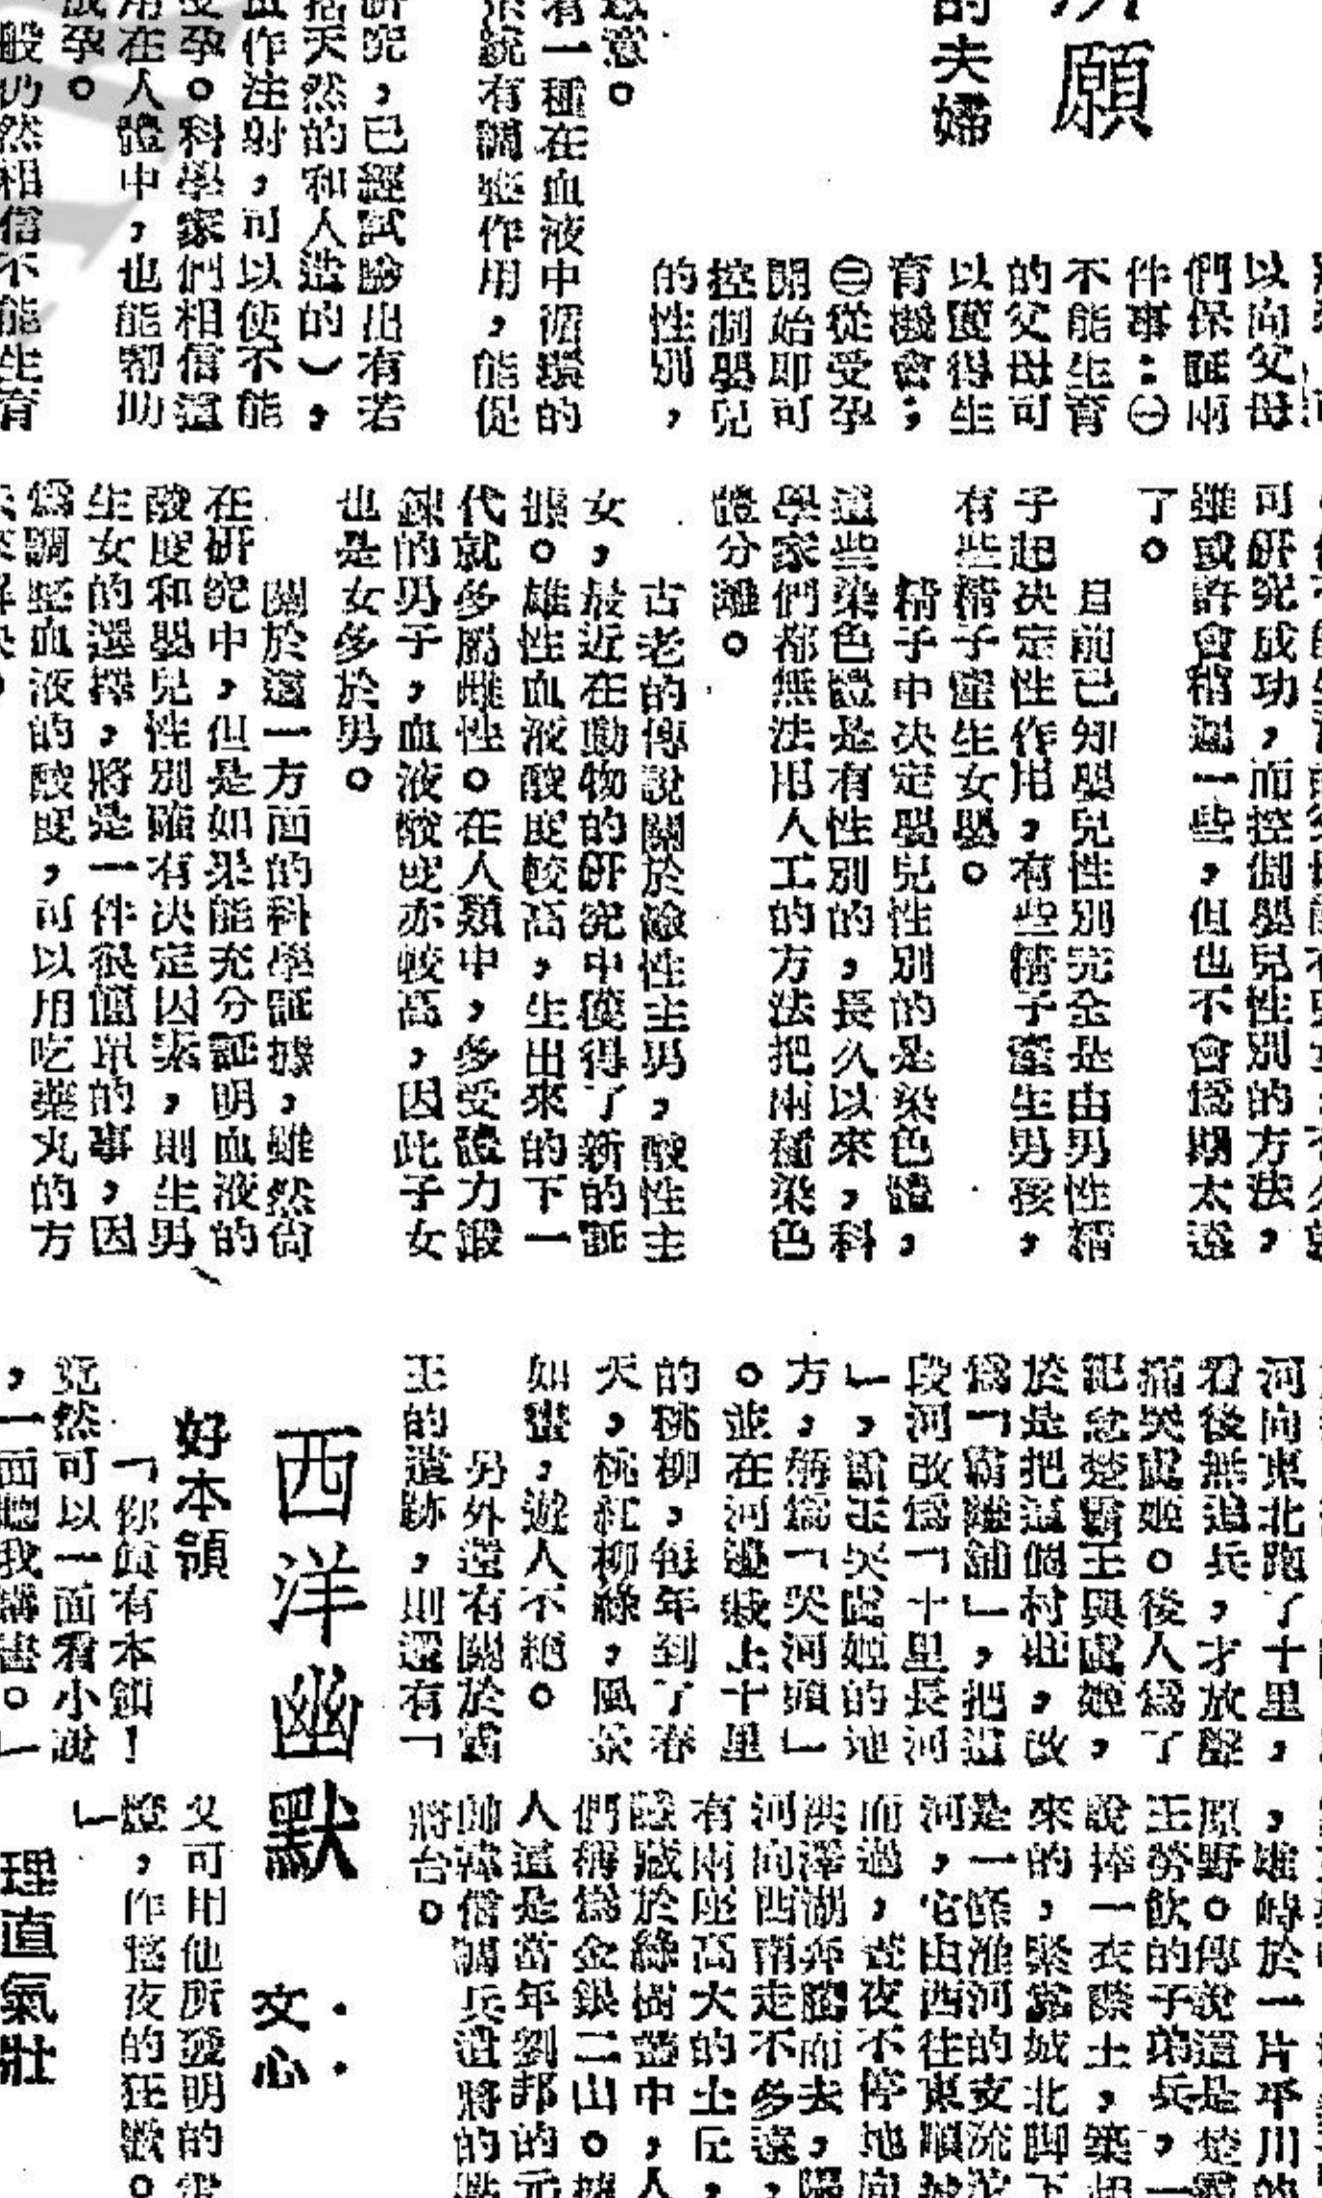 願
的夫婦
以向父母
們保証兩
件事：㊀
不能生育
的父母可
以獲得生
育機會；
㊁從受孕
開始即可
控制嬰兒
的性別，
意。
有一種在血液中循環的
系統有調整作用，能促
研究，已經試驗出有若
括天然的和人造的），
血作注射，可以使不能
受孕。科學家們相信這
用在人體中，也能幫助
成孕。
般仍然相信不能生育
可研究成功，而控制嬰兒性別的方法，
雖或許會稍遲一些，但也不會爲期太遠
了。
目前已知嬰兒性別完全是由男性精
子起決定性作用，有些精子產生男孩，
有些精子產生女嬰。
精子中決定嬰兒性別的是染色體，
這些染色體是有性別的，長久以來，科
學家們都無法用人工的方法把兩種染色
體分離。
古老的傳說關於鹼性主男，酸性主
女，最近在動物的研究中獲得了新的証
據。雄性血液酸度較高，生出來的下一
代就多屬雌性。在人類中，多受體力鍛
鍊的男子，血液酸度亦較高，因此子女
也是女多於男。
關於這一方面的科學証據，雖然尙
在研究中，但是如果能充分証明血液的
酸度和嬰兒性別確有決定因素，則生男
生女的選擇，將是一件很簡單的事，因
爲調整血液的酸度，可以用吃藥丸的方
法來解決。
河向東北跑了十里，
看後無追兵，才放聲
痛哭虞姬。後人爲了
紀念楚霸王與虞姬，
於是把這個村莊，改
爲「霸離舖」，把這
段河改爲「十里長河
」，霸王哭虞姬的地
方，稱爲「哭河頭」
。並在河邊栽上十里
的桃柳，每年到了春
天，桃紅柳綠，風景
如畫，遊人不絕。
另外還有關於霸
王的遺跡，則還有「
，雄峙於一片平川的
原野。傳說這是楚霸
王勞飲的子弟兵，一
說捧一衣襟土，築起
來的，緊靠城北脚下
是一條淮河的支流
河，它由西往東順城
而過，晝夜不停地向
洪澤湖奔騰而去，
河向西南走不多遠，
有兩座高大的土丘，
隱藏於綠樹叢中，人
們稱爲金銀二山。據
人這是當年劉邦的元
帥韓信調兵遣將的點
將台。
西洋幽默
文心
好本領
「你眞有本領！
竟然可以一面看小說
，一面聽我講書。」
又可用他所發明的電
燈，作整夜的狂歡。
」
理直氣壯